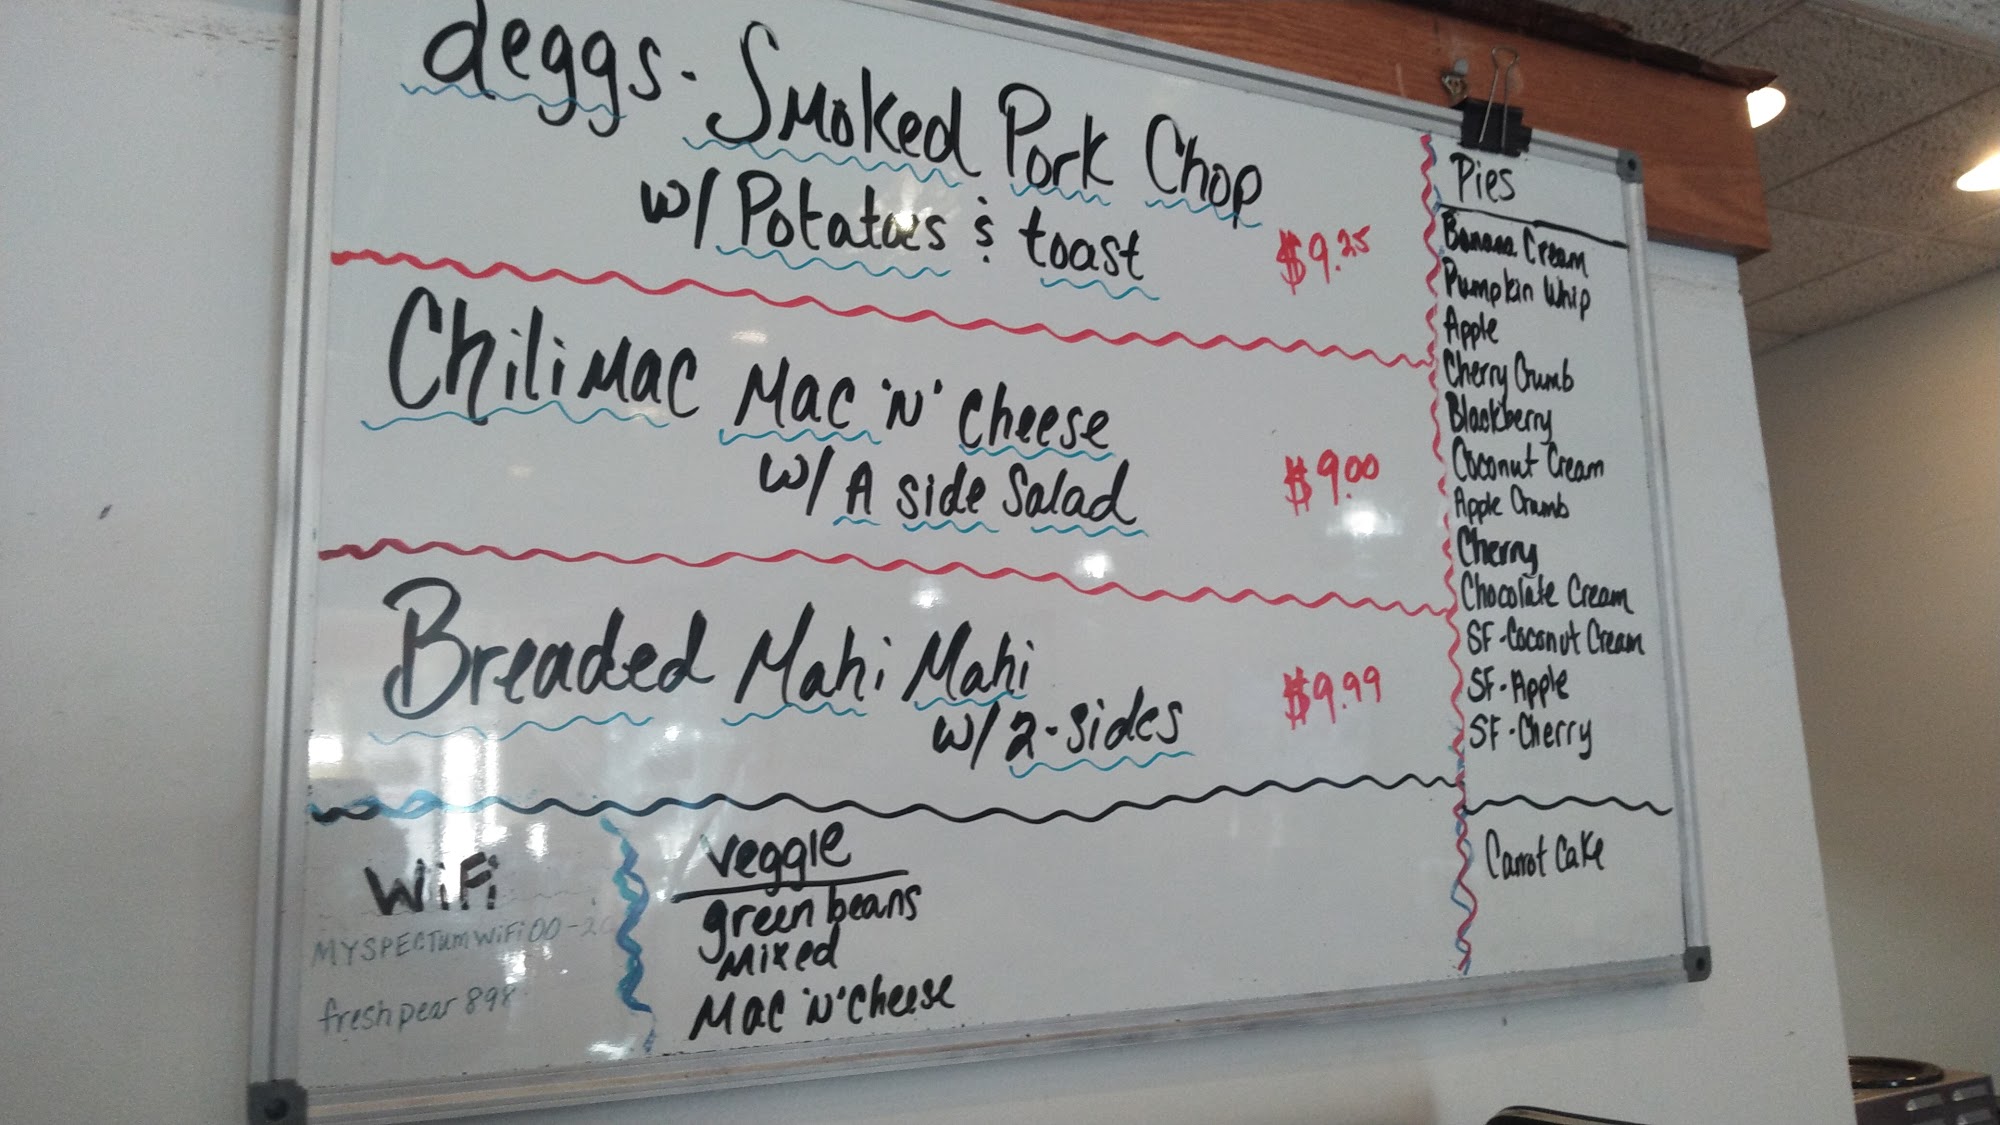 deggs - Smoked Pork Chop
w/ Potatoes & toast
$9.25
Chili Mac Mac 'N' Cheese
w/ A side Salad
$9.00
Breaded Mahi Mahi
w/ 2-sides
$9.99
WiFi
MYSPECTumWiFi00-20
freshpear898
veggie
green beans
Mixed
Mac 'N' Cheese
Pies
Banana Cream
Pumpkin Whip
Apple
Cherry Crumb
Blackberry
Coconut Cream
Apple Crumb
Cherry
Chocolate Cream
SF-Coconut Cream
SF-Apple
SF-Cherry
Carrot Cake